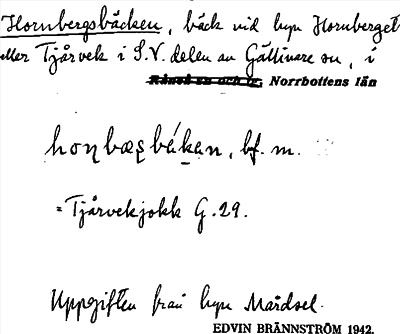 Hornbergsbäcken, bäck vid byn Hornberget
eller Tjårvek i S.V. delen av Gällivare sn, i
Råneå sn och tg, Norrbottens län
hoɳbæʂbékan, bf. m.
= Tjårvekjokk G. 29.
Uppgiften från byn Mårdsel.
EDVIN BRÄNNSTRÖM 1942.